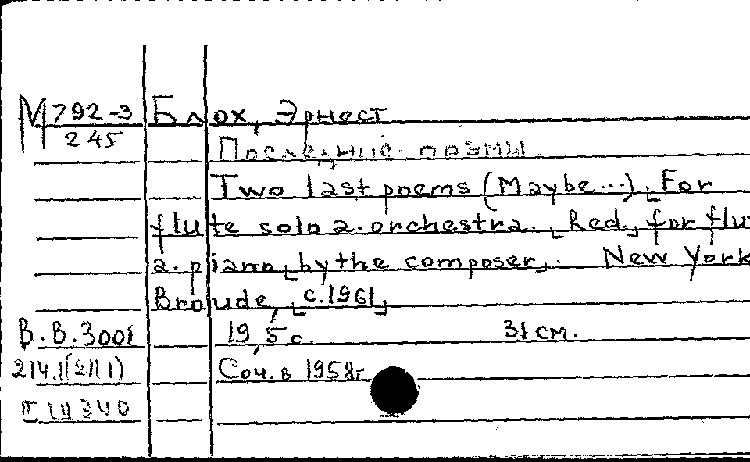 М 792-3 Блох, Эрнест
245
Последние поэмы
Two last poems (Maybe...) [For
flute solo a. orchestra. [Red.] for flu
a. piano [by the composer]. New York
Broude, [c.1961]
B.B.3001 19, 5 с. 31 см.
214.1(2/11) Соч. в 1958г.